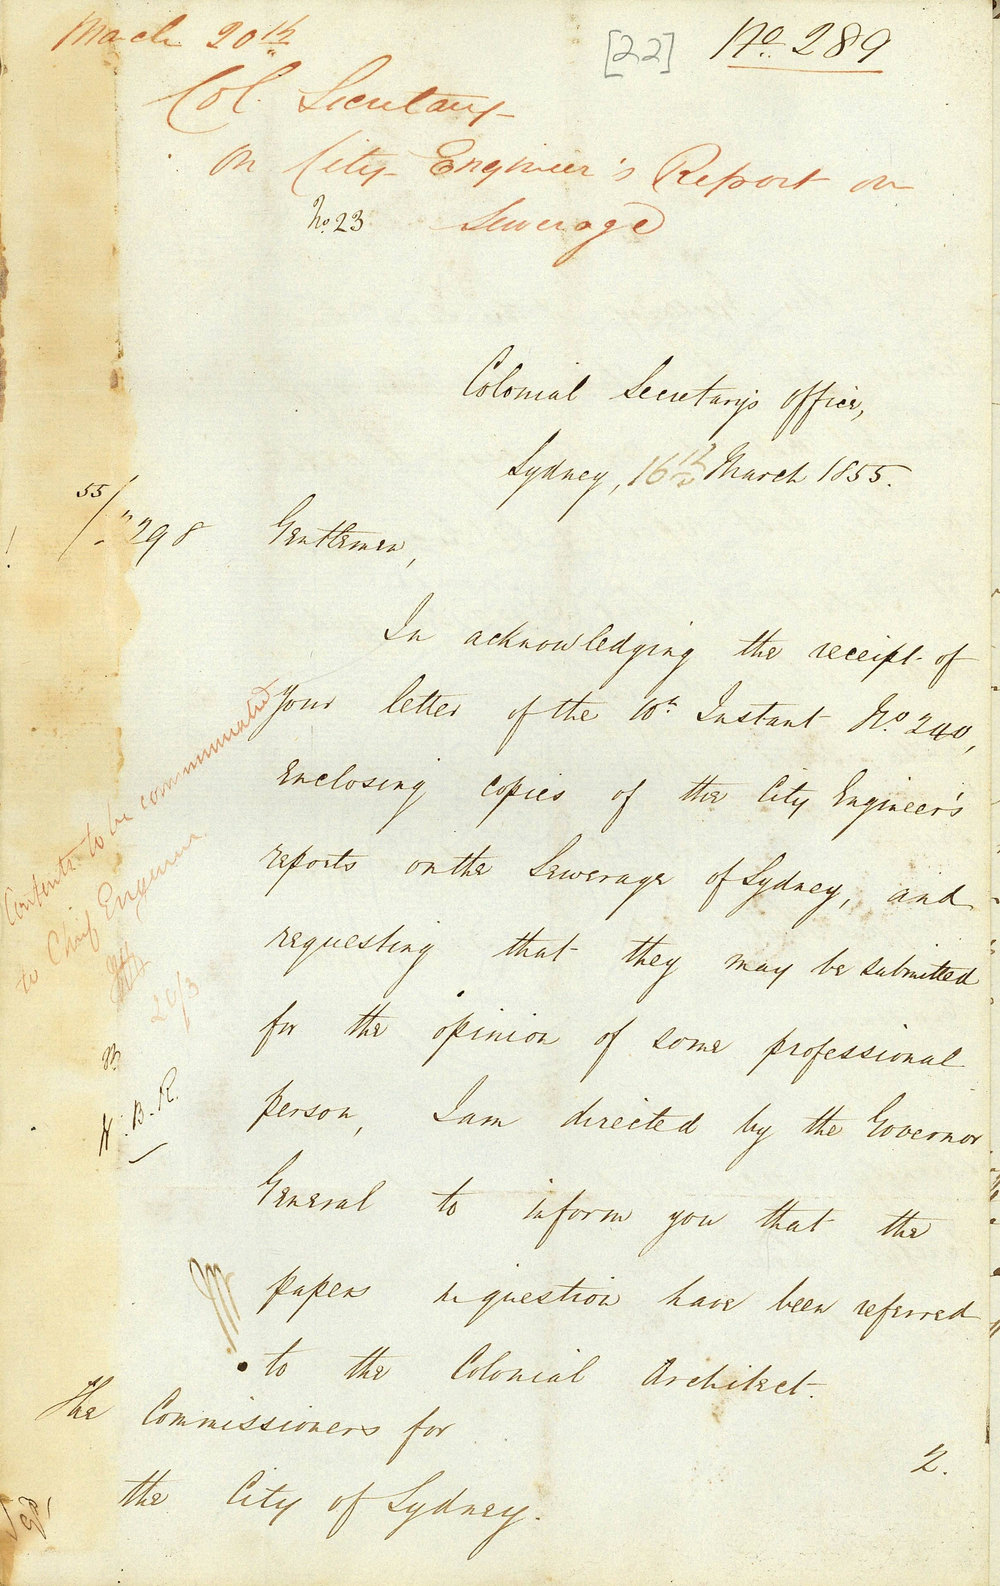 March 20th
[22]
No. 289
Col. Secretary
On City Engineer's Report on
Sewerage
No. 23
Colonial Secretary's Office,
Sydney, 16th March 1855.
55/298
Gentlemen,
In acknowledging the receipt of
your letter of the 10th Instant No. 240,
enclosing copies of the City Engineer's
reports on the Sewerage of Sydney, and
requesting that they may be submitted
for the opinion of some professional
person, I am directed by the Governor
General to inform you that the
papers in question have been referred
to the Colonial Architect.
Contents to be communicated
to Chief Engineer.
20/3
H. B. R.
The Commissioners for
the City of Sydney.
2.